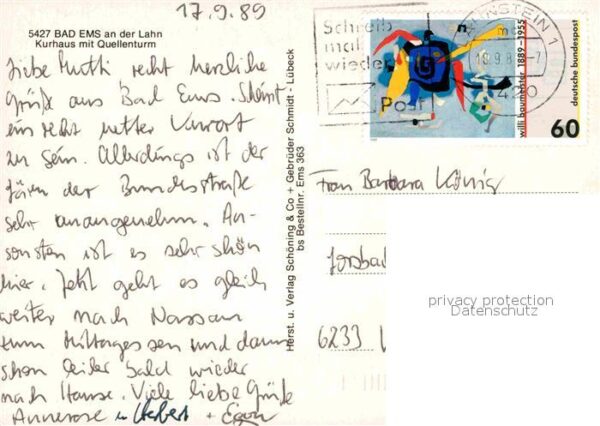 17.9.89
5427 BAD EMS an der Lahn
Kurhaus mit Quellenturm
Liebe Mutti recht herzliche
Grüße aus Bad Ems. Scheint
ein recht netter Kurort
zu sein. Allerdings ist der
der Bundesstraße
sehr unangenehm. An-
sonsten ist es sehr schön
hier. Jetzt geht es gleich
weiter nach Nassau
zum Mittagessen und dann
schon leider bald wieder
nach Hause. Viele liebe Grüße
Annerose u Herbert + Egon
Herst. u. Verlag Schöning & Co + Gebrüder Schmidt - Lübeck
bs Bestellnr. Ems 363
Schreib
mal
wieder
Post
NSTEIN 1
willi baumeister 1889-1955
deutsche bundespost
60
Frau Barbara König
6233
privacy protection
Datenschutz